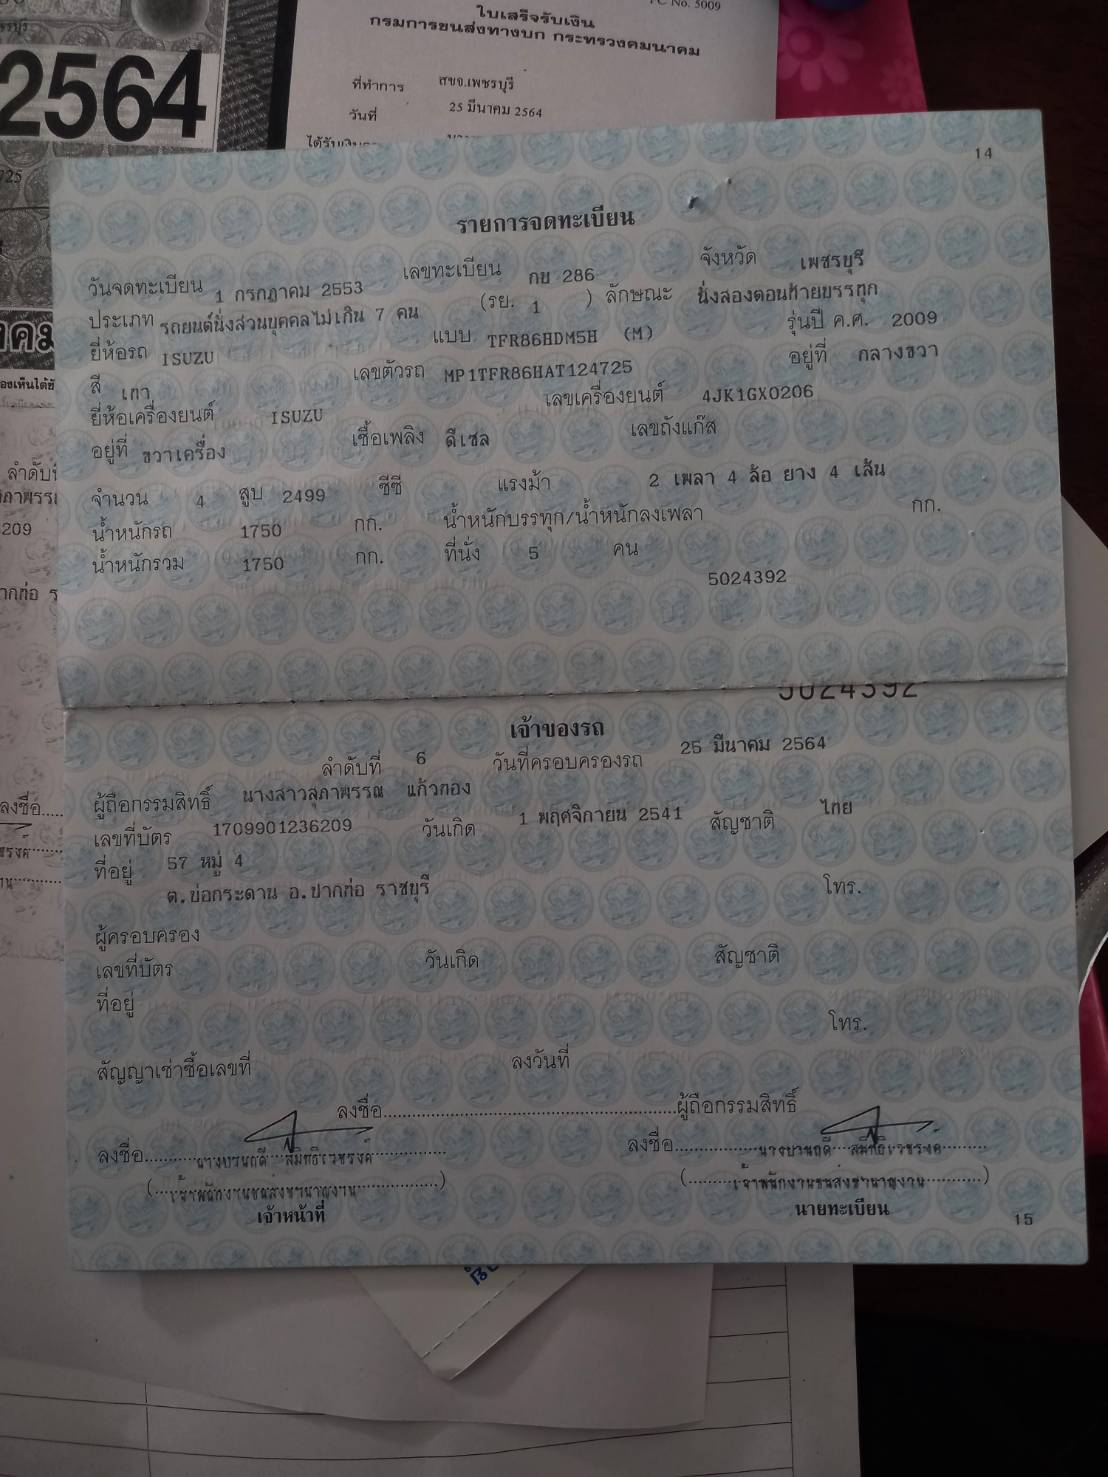 2564
725
TC No. 5009
ใบเสร็จรับเงิน
กรมการขนส่งทางบก กระทรวงคมนาคม
ที่ทำการ สขจ.เพชรบุรี
วันที่ 25 มีนาคม 2564
14
รายการจดทะเบียน
วันจดทะเบียน 1 กรกฎาคม 2553 เลขทะเบียน กย 286 จังหวัด เพชรบุรี
ประเภท รถยนต์นั่งส่วนบุคคลไม่เกิน 7 คน (รย. 1 ) ลักษณะ นั่งสองตอนท้ายบรรทุก
ยี่ห้อรถ ISUZU แบบ TFR86HDM5H (M) รุ่นปี ค.ศ. 2009
สี เทา เลขตัวรถ MP1TFR86HAT124725 อยู่ที่ กลางขวา
ยี่ห้อเครื่องยนต์ ISUZU เลขเครื่องยนต์ 4JK1GX0206
อยู่ที่ ขวาเครื่อง เชื้อเพลิง ดีเซล เลขถังแก๊ส
จำนวน 4 สูบ 2499 ซีซี แรงม้า 2 เพลา 4 ล้อ ยาง 4 เส้น
น้ำหนักรถ 1750 กก. น้ำหนักบรรทุก/น้ำหนักลงเพลา กก.
น้ำหนักรวม 1750 กก. ที่นั่ง 5 คน
5024392
5024392
เจ้าของรถ
ลำดับที่ 6 วันที่ครอบครองรถ 25 มีนาคม 2564
ผู้ถือกรรมสิทธิ์ นางสาวสุภาพรรณ แก้วทอง
เลขที่บัตร 1709901236209 วันเกิด 1 พฤศจิกายน 2541 สัญชาติ ไทย
ที่อยู่ 57 หมู่ 4
ต.บ่อกระดาน อ.ปากท่อ ราชบุรี โทร.
ผู้ครอบครอง
เลขที่บัตร วันเกิด สัญชาติ
ที่อยู่
โทร.
สัญญาเช่าซื้อเลขที่ ลงวันที่
ลงชื่อ....................ผู้ถือกรรมสิทธิ์
ลงชื่อ..... ลงชื่อ.....
(เจ้าพนักงานขนส่งชำนาญงาน) (เจ้าพนักงานขนส่งชำนาญงาน)
เจ้าหน้าที่ นายทะเบียน
15